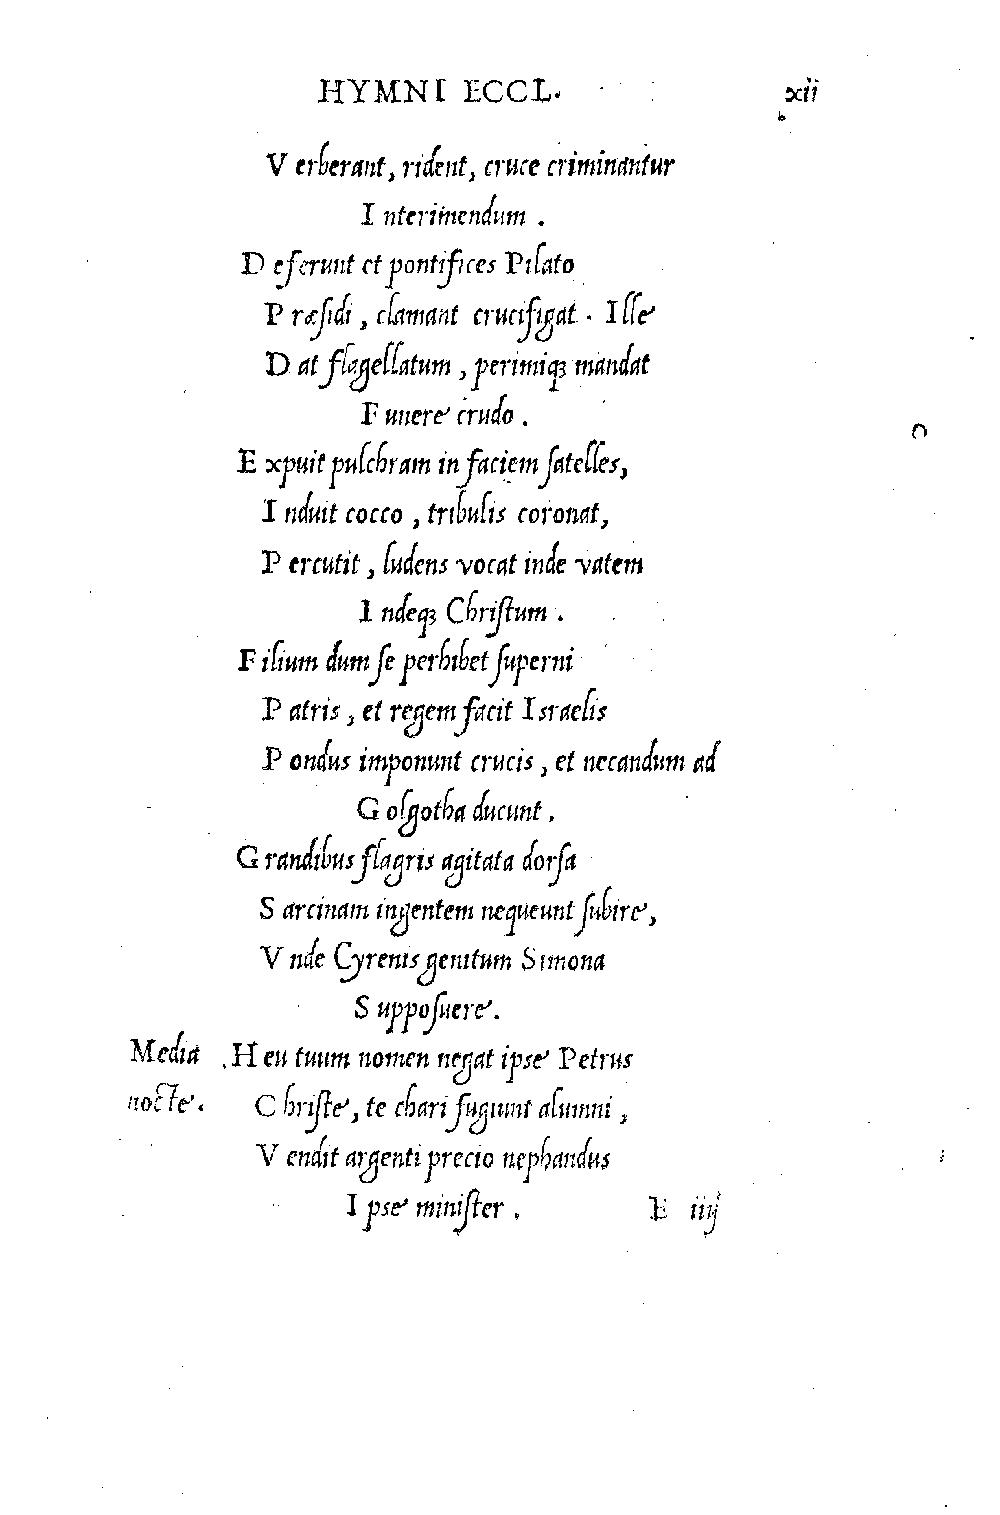 HYMNI ECCL. xii
Verberant, rident, cruce criminantur
Interimendum.
Deferunt et pontifices Pilato
Præsidi, clamant crucifigat. Ille
Dat flagellatum, perimiqꝫ mandat
Funere crudo.
Expuit pulchram in faciem satelles,
Induit cocco, tribulis coronat,
Percutit, ludens vocat inde vatem
Indeqꝫ Christum.
Filium dum se perhibet superni
Patris, et regem facit Israelis
Pondus imponunt crucis, et necandum ad
Golgotha ducunt.
Grandibus flagris agitata dorsa
Sarcinam ingentem nequeunt subire,
Vnde Cyrenis genitum Simona
Supposuere.
Media Heu tuum nomen negat ipse Petrus
nocte. Christe, te chari fugiunt alumni,
Vendit argenti precio nephandus
Ipse minister. E iiij